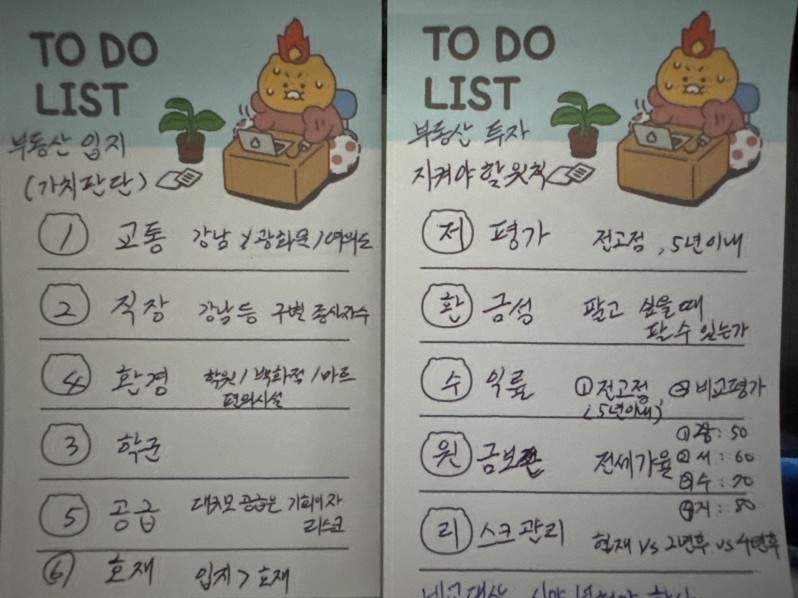 TO DO
LIST
부동산 입지
(가치판단)
1 교통 강남 / 광화문 / 여의도
2 직장 강남 등 구별 종사자수
4 환경 학원 / 백화점 / 마트
편의시설
3 학군
5 공급 대규모 공급은 기회이자
리스크
6 호재 입지 > 호재
TO DO
LIST
부동산 투자
지켜야 할 원칙
저 평가 전고점, 5년이내
환 금성 팔고 싶을 때
팔 수 있는가
수 익률 ① 전고점, ② 비교평가
(5년이내)
원 금보존 전세가율 ① 강: 50
② 서: 60
③ 수: 70
④ 지: 80
리 스크 관리 현재 vs 2년후 vs 4년후
비교대상